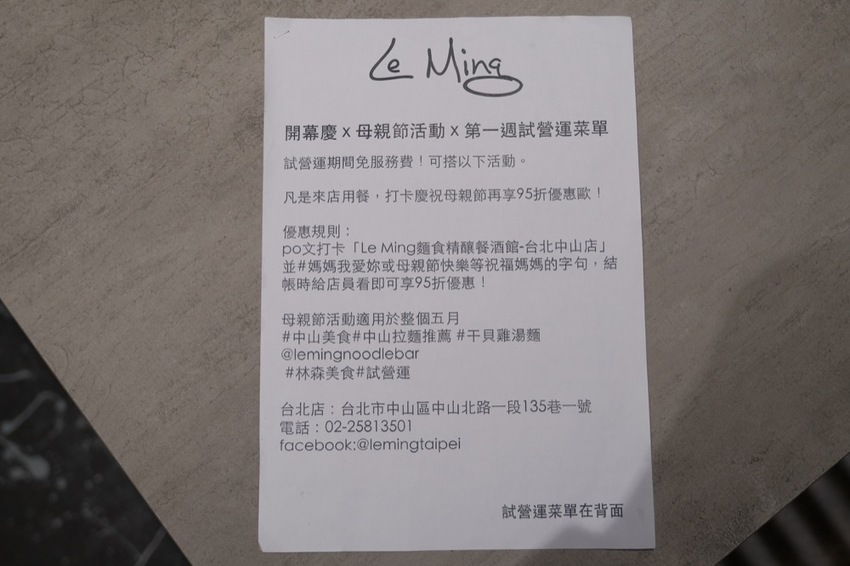 Le Ming
開幕慶 x 母親節活動 x 第一週試營運菜單
試營運期間免服務費！可搭以下活動。
凡是來店用餐，打卡慶祝母親節再享95折優惠歐！
優惠規則：
po文打卡「Le Ming麵食精釀餐酒館-台北中山店」
並#媽媽我愛妳或母親節快樂等祝福媽媽的字句，結
帳時給店員看即可享95折優惠！
母親節活動適用於整個五月
#中山美食#中山拉麵推薦 #干貝雞湯麵
@lemingnoodlebar
#林森美食#試營運
台北店：台北市中山區中山北路一段135巷一號
電話：02-25813501
facebook:@lemingtaipei
試營運菜單在背面